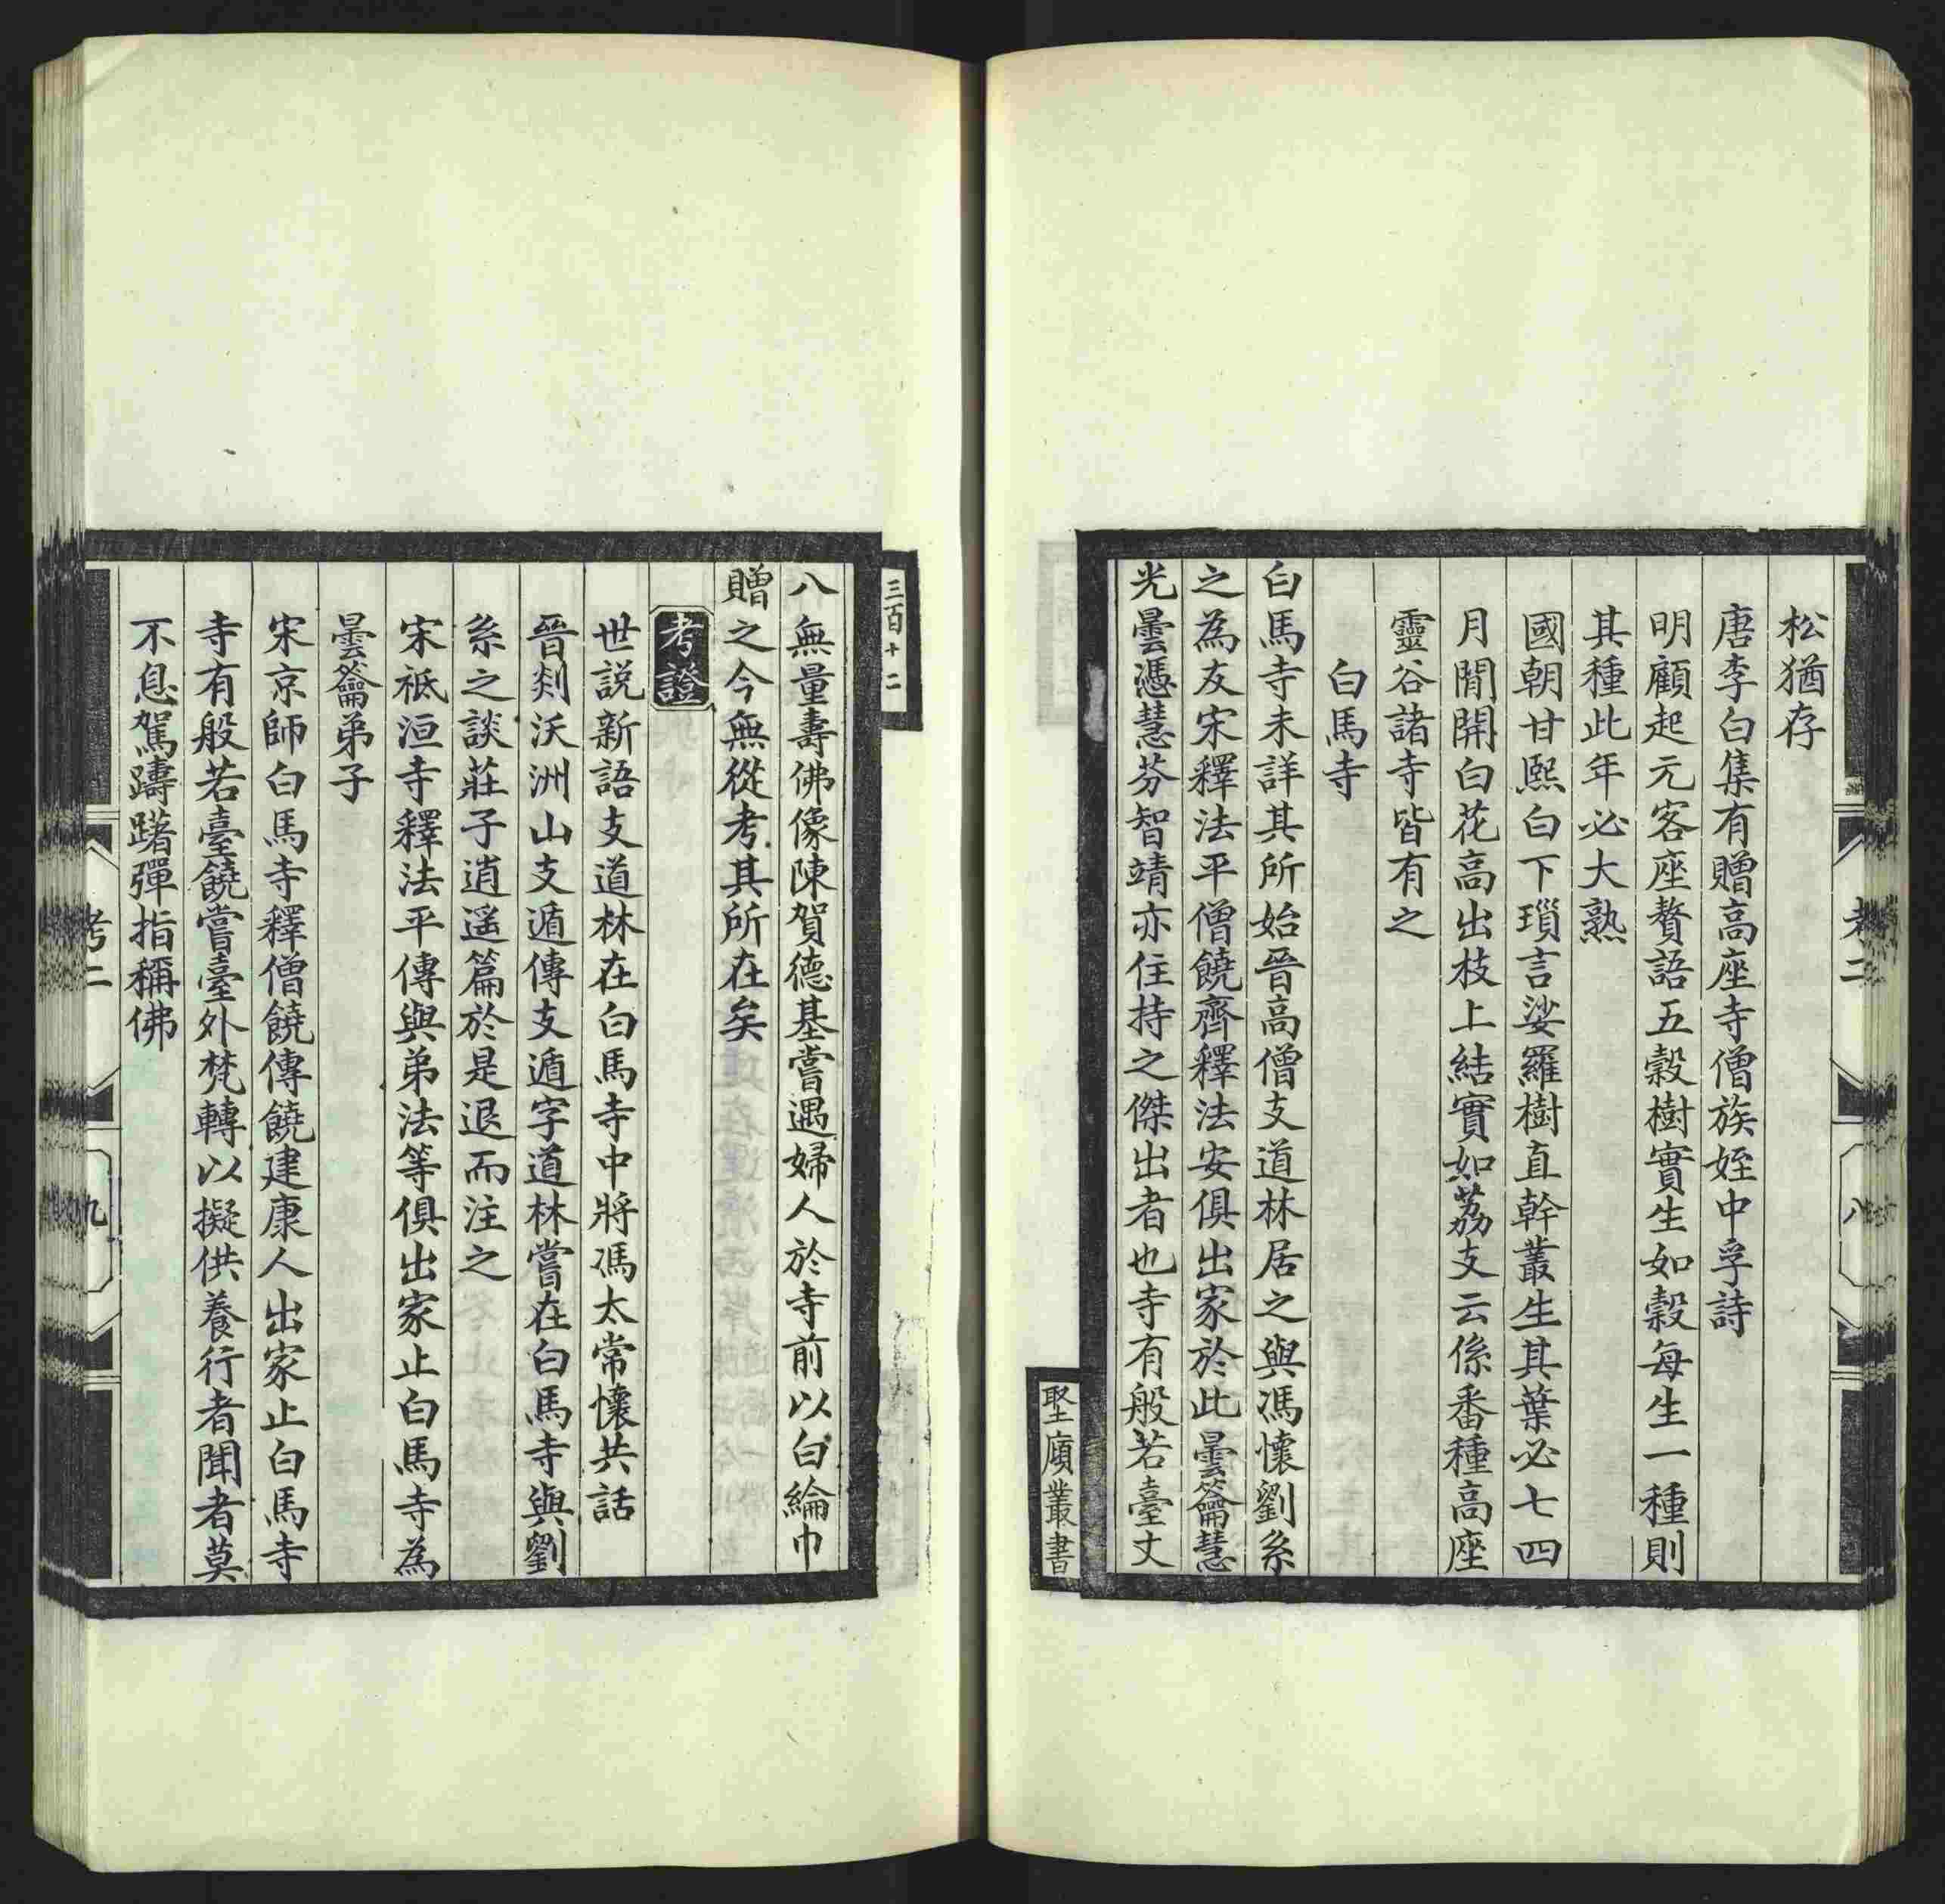 松猶存
唐李白集有贈高座寺僧族姪中孚詩
明顧起元客座贅語五穀樹實生如穀每生一種則
其種此年必大熟
國朝甘熙白下瑣言娑羅樹直幹叢生其葉必七四
月閒開白花高出枝上結實如荔支云係番種高座
靈谷諸寺皆有之
白馬寺
白馬寺未詳其所始晉高僧支道林居之與馮懷劉系
之為友宋釋法平僧饒齊釋法安俱出家於此曇籥慧
光曇憑慧芬智靖亦住持之傑出者也寺有般若臺丈
考二
八
堅㢑叢書
三百十二
八無量壽佛像陳賀德基嘗遇婦人於寺前以白綸巾
贈之今無從考其所在矣
考證
世說新語支道林在白馬寺中將馮太常懷共話
晉剡沃洲山支遁傳支遁字道林嘗在白馬寺與劉
系之談莊子逍遙篇於是退而注之
宋祗洹寺釋法平傳與弟法等俱出家止白馬寺為
曇籥弟子
宋京師白馬寺釋僧饒傳饒建康人出家止白馬寺
寺有般若臺饒嘗臺外梵轉以擬供養行者聞者莫
不息駕躊躇彈指稱佛
考二
九